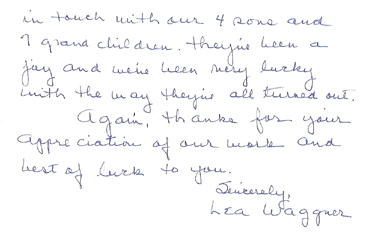 in touch with our 4 sons and
9 grand children. they've been a
joy and we've been very lucky
with the way they've all turned out.
Again, thanks for your
appreciation of our work and
best of luck to you.
Sincerely,
Lea Waggner